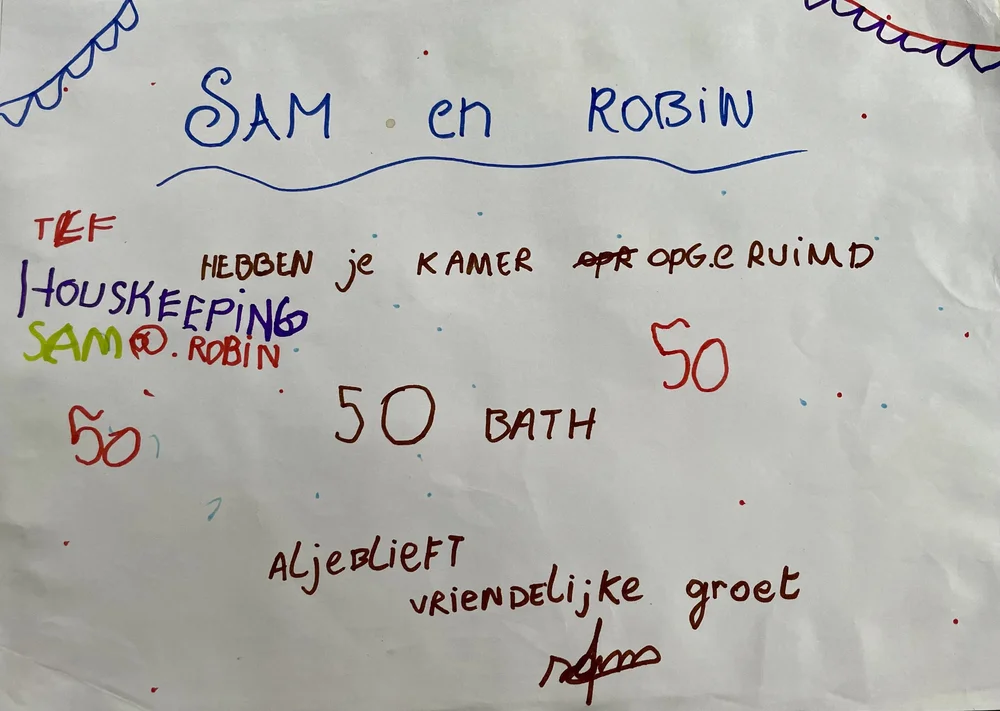 SAM en ROBiN
TEF
HEBBEN je KAMER OPG.e RUiMD
HOUSKEEPiNG
SAM @. ROBiN
50
50 BATH
50
AljeBlieFT
VRieNDElijke groet